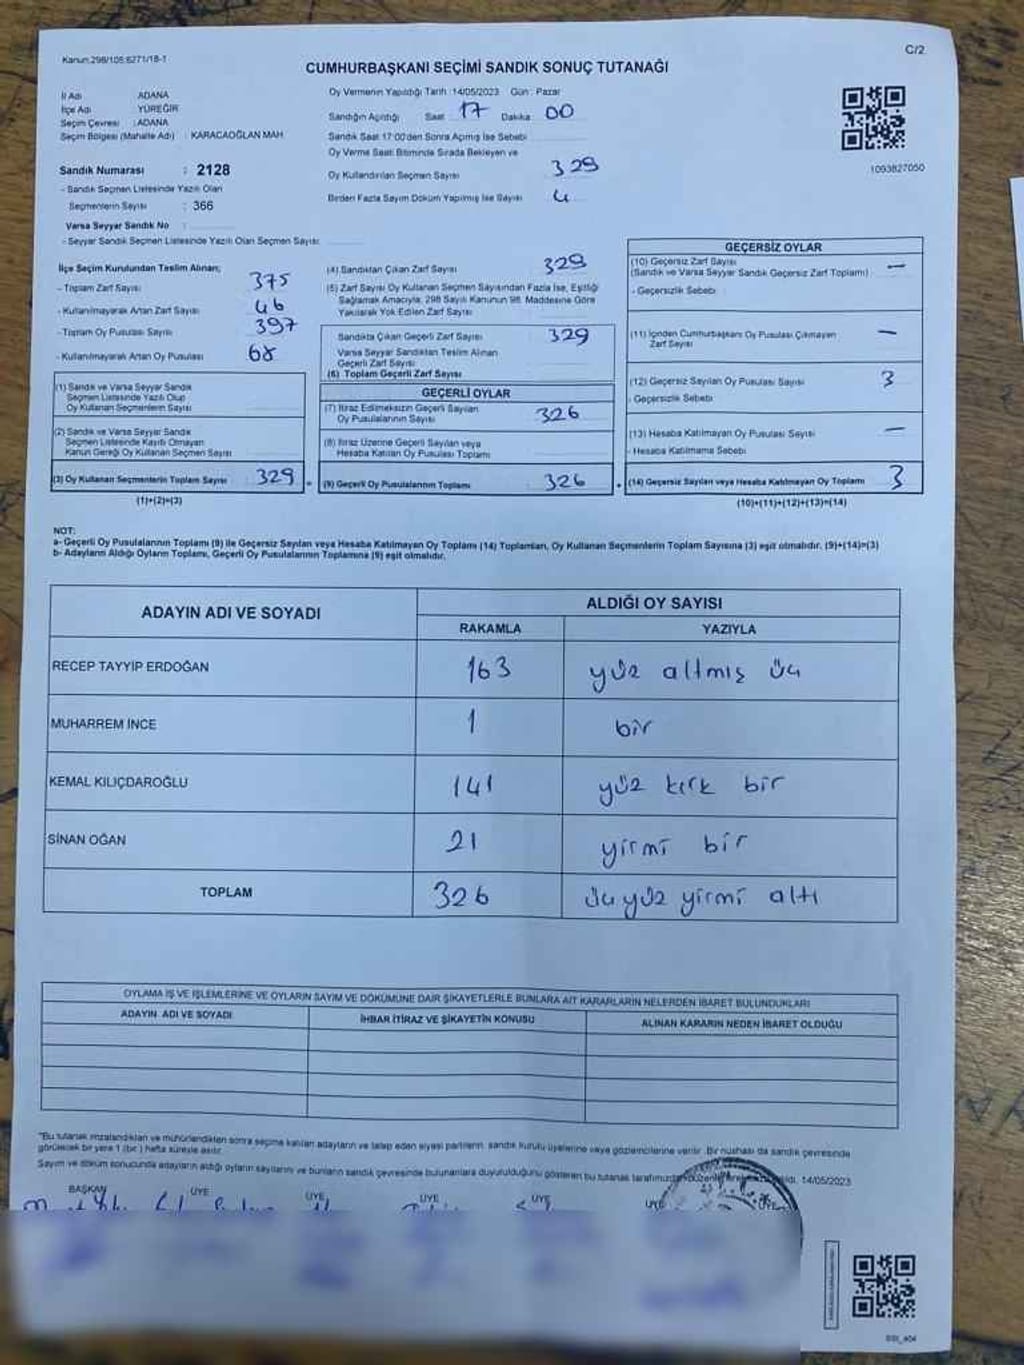 Kanun:298/105;6271/18-1
C/2
CUMHURBAŞKANI SEÇİMİ SANDIK SONUÇ TUTANAĞI
İl Adı : ADANA
İlçe Adı : YÜREĞİR
Seçim Çevresi : ADANA
Seçim Bölgesi (Mahalle Adı) : KARACAOĞLAN MAH
Sandık Numarası : 2128
- Sandık Seçmen Listesinde Yazılı Olan
Seçmenlerin Sayısı : 366
Varsa Seyyar Sandık No :
- Seyyar Sandık Seçmen Listesinde Yazılı Olan Seçmen Sayısı:
Oy Vermenin Yapıldığı Tarih : 14/05/2023 Gün : Pazar
Sandığın Açıldığı Saat 17 Dakika 00
Sandık Saat 17:00'den Sonra Açılmış İse Sebebi
Oy Verme Saati Bitiminde Sırada Bekleyen ve
Oy Kullandırılan Seçmen Sayısı 329
Birden Fazla Sayım Döküm Yapılmış İse Sayısı 4
1093827050
İlçe Seçim Kurulundan Teslim Alınan;
- Toplam Zarf Sayısı 375
- Kullanılmayarak Artan Zarf Sayısı 46
- Toplam Oy Pusulası Sayısı 397
- Kullanılmayarak Artan Oy Pusulası 68
(1) Sandık ve Varsa Seyyar Sandık
Seçmen Listesinde Yazılı Olup
Oy Kullanan Seçmenlerin Sayısı
(2) Sandık ve Varsa Seyyar Sandık
Seçmen Listesinde Kayıtlı Olmayan
Kanun Gereği Oy Kullanan Seçmen Sayısı
(3) Oy Kullanan Seçmenlerin Toplam Sayısı 329
(1)+(2)=(3)
(4) Sandıktan Çıkan Zarf Sayısı 329
(5) Zarf Sayısı Oy Kullanan Seçmen Sayısından Fazla İse, Eşitliği
Sağlamak Amacıyla; 298 Sayılı Kanunun 98. Maddesine Göre
Yakılarak Yok Edilen Zarf Sayısı
Sandıkta Çıkan Geçerli Zarf Sayısı 329
Varsa Seyyar Sandıktan Teslim Alınan
Geçerli Zarf Sayısı
(6) Toplam Geçerli Zarf Sayısı
GEÇERLİ OYLAR
(7) İtiraz Edilmeksizin Geçerli Sayılan
Oy Pusulalarının Sayısı 326
(8) İtiraz Üzerine Geçerli Sayılan veya
Hesaba Katılan Oy Pusulası Toplamı
= (9) Geçerli Oy Pusulalarının Toplamı 326
GEÇERSİZ OYLAR
(10) Geçersiz Zarf Sayısı —
(Sandık ve Varsa Seyyar Sandık Geçersiz Zarf Toplamı)
- Geçersizlik Sebebi
(11) İçinden Cumhurbaşkanı Oy Pusulası Çıkmayan —
Zarf Sayısı
(12) Geçersiz Sayılan Oy Pusulası Sayısı 3
- Geçersizlik Sebebi
(13) Hesaba Katılmayan Oy Pusulası Sayısı —
- Hesaba Katılmama Sebebi
+ (14) Geçersiz Sayılan veya Hesaba Katılmayan Oy Toplamı 3
(10)+(11)+(12)+(13)=(14)
NOT:
a- Geçerli Oy Pusulalarının Toplamı (9) ile Geçersiz Sayılan veya Hesaba Katılmayan Oy Toplamı (14) Toplamları, Oy Kullanan Seçmenlerin Toplam Sayısına (3) eşit olmalıdır. (9)+(14)=(3)
b- Adayların Aldığı Oyların Toplamı, Geçerli Oy Pusulalarının Toplamına (9) eşit olmalıdır.
ADAYIN ADI VE SOYADI
ALDIĞI OY SAYISI
RAKAMLA YAZIYLA
RECEP TAYYİP ERDOĞAN 163 yüz altmış üç
MUHARREM İNCE 1 bir
KEMAL KILIÇDAROĞLU 141 yüz kırk bir
SİNAN OĞAN 21 yirmi bir
TOPLAM 326 üçyüz yirmi altı
OYLAMA İŞ VE İŞLEMLERİNE VE OYLARIN SAYIM VE DÖKÜMÜNE DAİR ŞİKAYETLERLE BUNLARA AİT KARARLARIN NELERDEN İBARET BULUNDUKLARI
ADAYIN ADI VE SOYADI İHBAR İTİRAZ VE ŞİKAYETİN KONUSU ALINAN KARARIN NEDEN İBARET OLDUĞU
"Bu tutanak imzalandıktan ve mühürlendikten sonra seçime katılan adayların ve talep eden siyasi partilerin, sandık kurulu üyelerine veya gözlemcilerine verilir. Bir nüshası da sandık çevresinde
görülecek bir yere 1 (bir) hafta süreyle asılır.
Sayım ve döküm sonucunda adayların aldığı oyların sayılarını ve bunların sandık çevresinde bulunanlara duyurulduğunu gösteren bu tutanak tarafımızdan 14/05/2023
BAŞKAN ÜYE ÜYE ÜYE ÜYE ÜYE